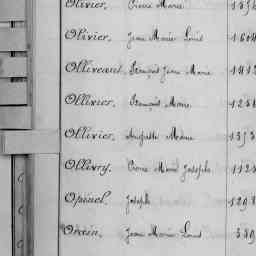 Olivier, Pierre Marie
Olivier, Jean Marie Louis 1604
Olliveaud, François Jean Marie 1412
Ollivier, François Marie
Ollivier, Auguste Marie
Ollivry, Pierre Marie Joseph
Opinel, Joseph 1298
Orvin, Jean Marie Louis 389